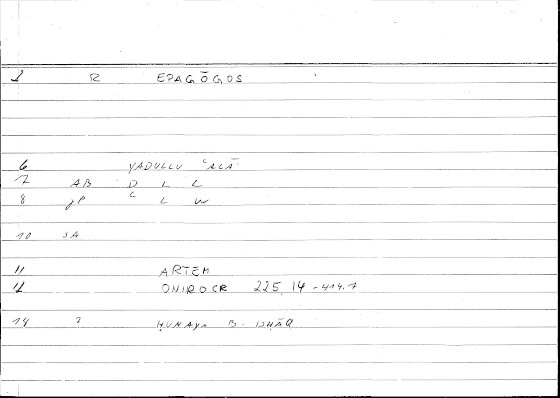 1 R EPAGŌGOS
6 YADULLU ʿALĀ
7 AB D L L
8 JP L L W
10 SA
11 ARTEM
12 ONIROCR 225, 14 - 414.7
14 ? ḤUNAYN B. ISḤĀQ